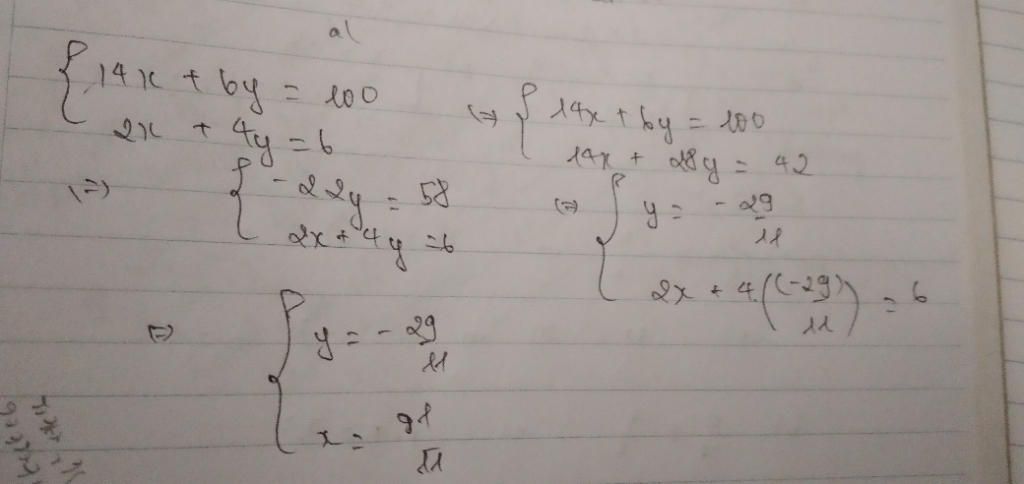 a(
{ 14x + 6y = 100
2x + 4y = 6
(=) { 14x + 6y = 100
14x + 28y = 42
(=) { -22y = 58
2x + 4y = 6
(=) { y = -29/11
2x + 4.((-29)/11) = 6
(=) { y = -29/11
x = 91/11